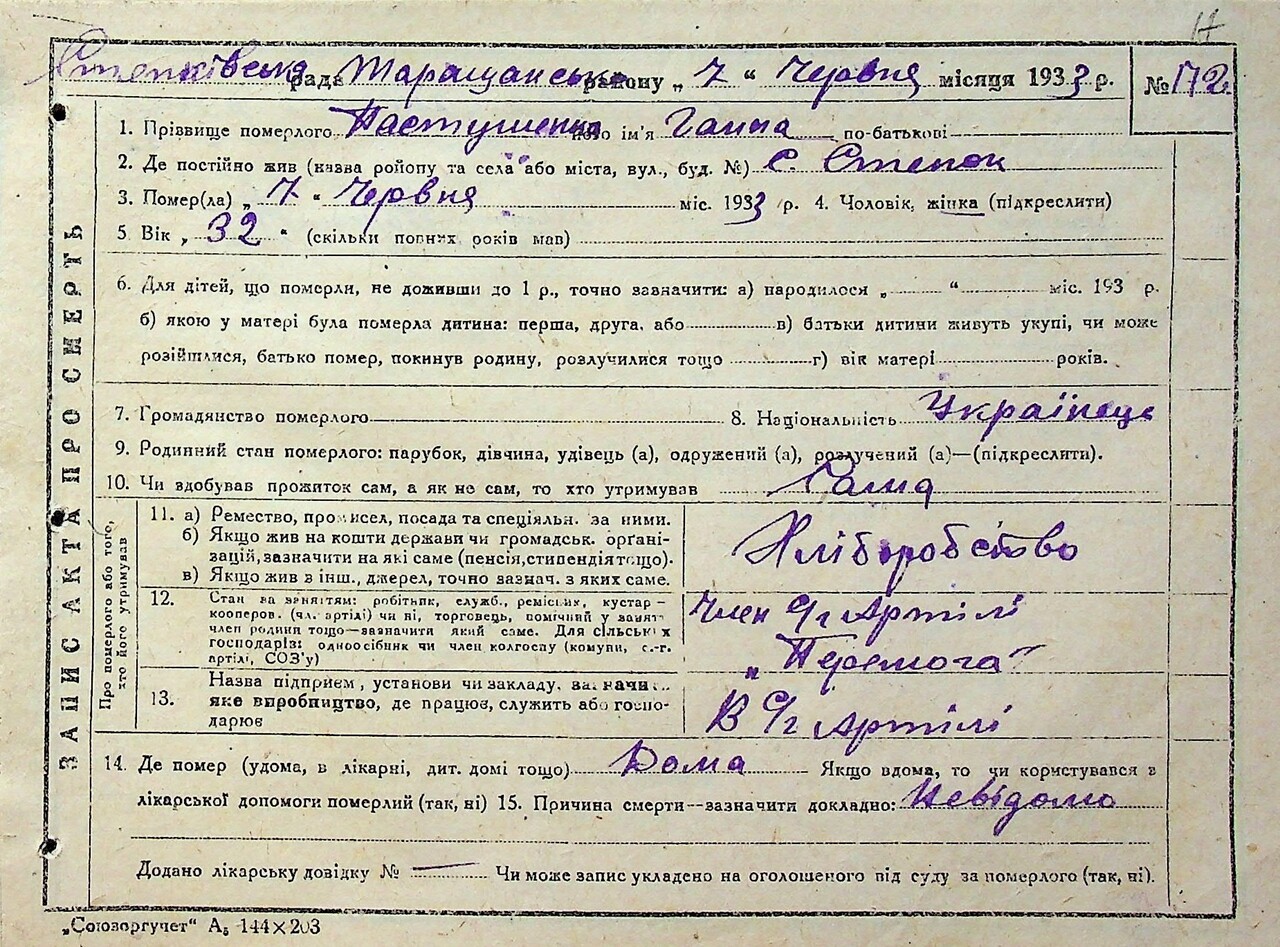 17
Степківська рада Таращанського району „ 7 “ Червня місяця 1933 р. № 172
1. Прізвище померлого Пастушенко його ім'я Ганна по-батькові
2. Де постійно жив (назва району та села або міста, вул., буд. №) с. Степок
3. Помер(ла) „ 7 “ Червня міс. 1933 р. 4. Чоловік, жінка (підкреслити)
5. Вік „ 32 “ (скільки повних років мав)
6. Для дітей, що померли, не доживши до 1 р., точно зазначити: а) народилося „ “ міс. 193 р.
б) якою у матері була померла дитина: перша, друга, або в) батьки дитини живуть укупі, чи може
розійшлися, батько помер, покинув родину, розлучилися тощо г) вік матері років.
7. Громадянство померлого 8. Національність Українець
9. Родинний стан померлого: парубок, дівчина, удівець (а), одружений (а), розлучений (а)—(підкреслити).
10. Чи здобував прожиток сам, а як не сам, то хто утримував Сама
ЗАПИС АКТА ПРО СМЕРТЬ
Про померлого або того,
хто його утримував
11. а) Ремество, промисел, посада та спеціяльн. за ними.
б) Якщо жив на кошти держави чи громадськ. орґані-
зацій, зазначити на які саме (пенсія, стипендія тощо).
в) Якщо жив з інш., джерел, точно зазнач. з яких саме.
Хліборобство
12. Стан за заняттям: робітник, служб., реміСник, кустар—
кооперов. (чл. артілі) чи ні, торговець, помічний у занят.
член родини тощо—зазначити який саме. Для сільських
господарів: одноосібник чи член колгоспу (комуни, с.-г.
артілі, СОЗ'у)
Член С/г Артілі
„Перемога“
13. Назва підприєм, установи чи закладу, зазначи...
яке виробництво, де працює, служить або госпо-
дарює
В С/г Артілі
14. Де помер (удома, в лікарні, дит. домі тощо) Дома Якщо вдома, то чи користувався з
лікарської допомоги померлий (так, ні) 15. Причина смерти—зазначити докладно: Невідомо
Додано лікарську довідку № — Чи може запис укладено на оголошеного від суду за померлого (так, ні).
„Союзоргучет“ А₅ 144×203